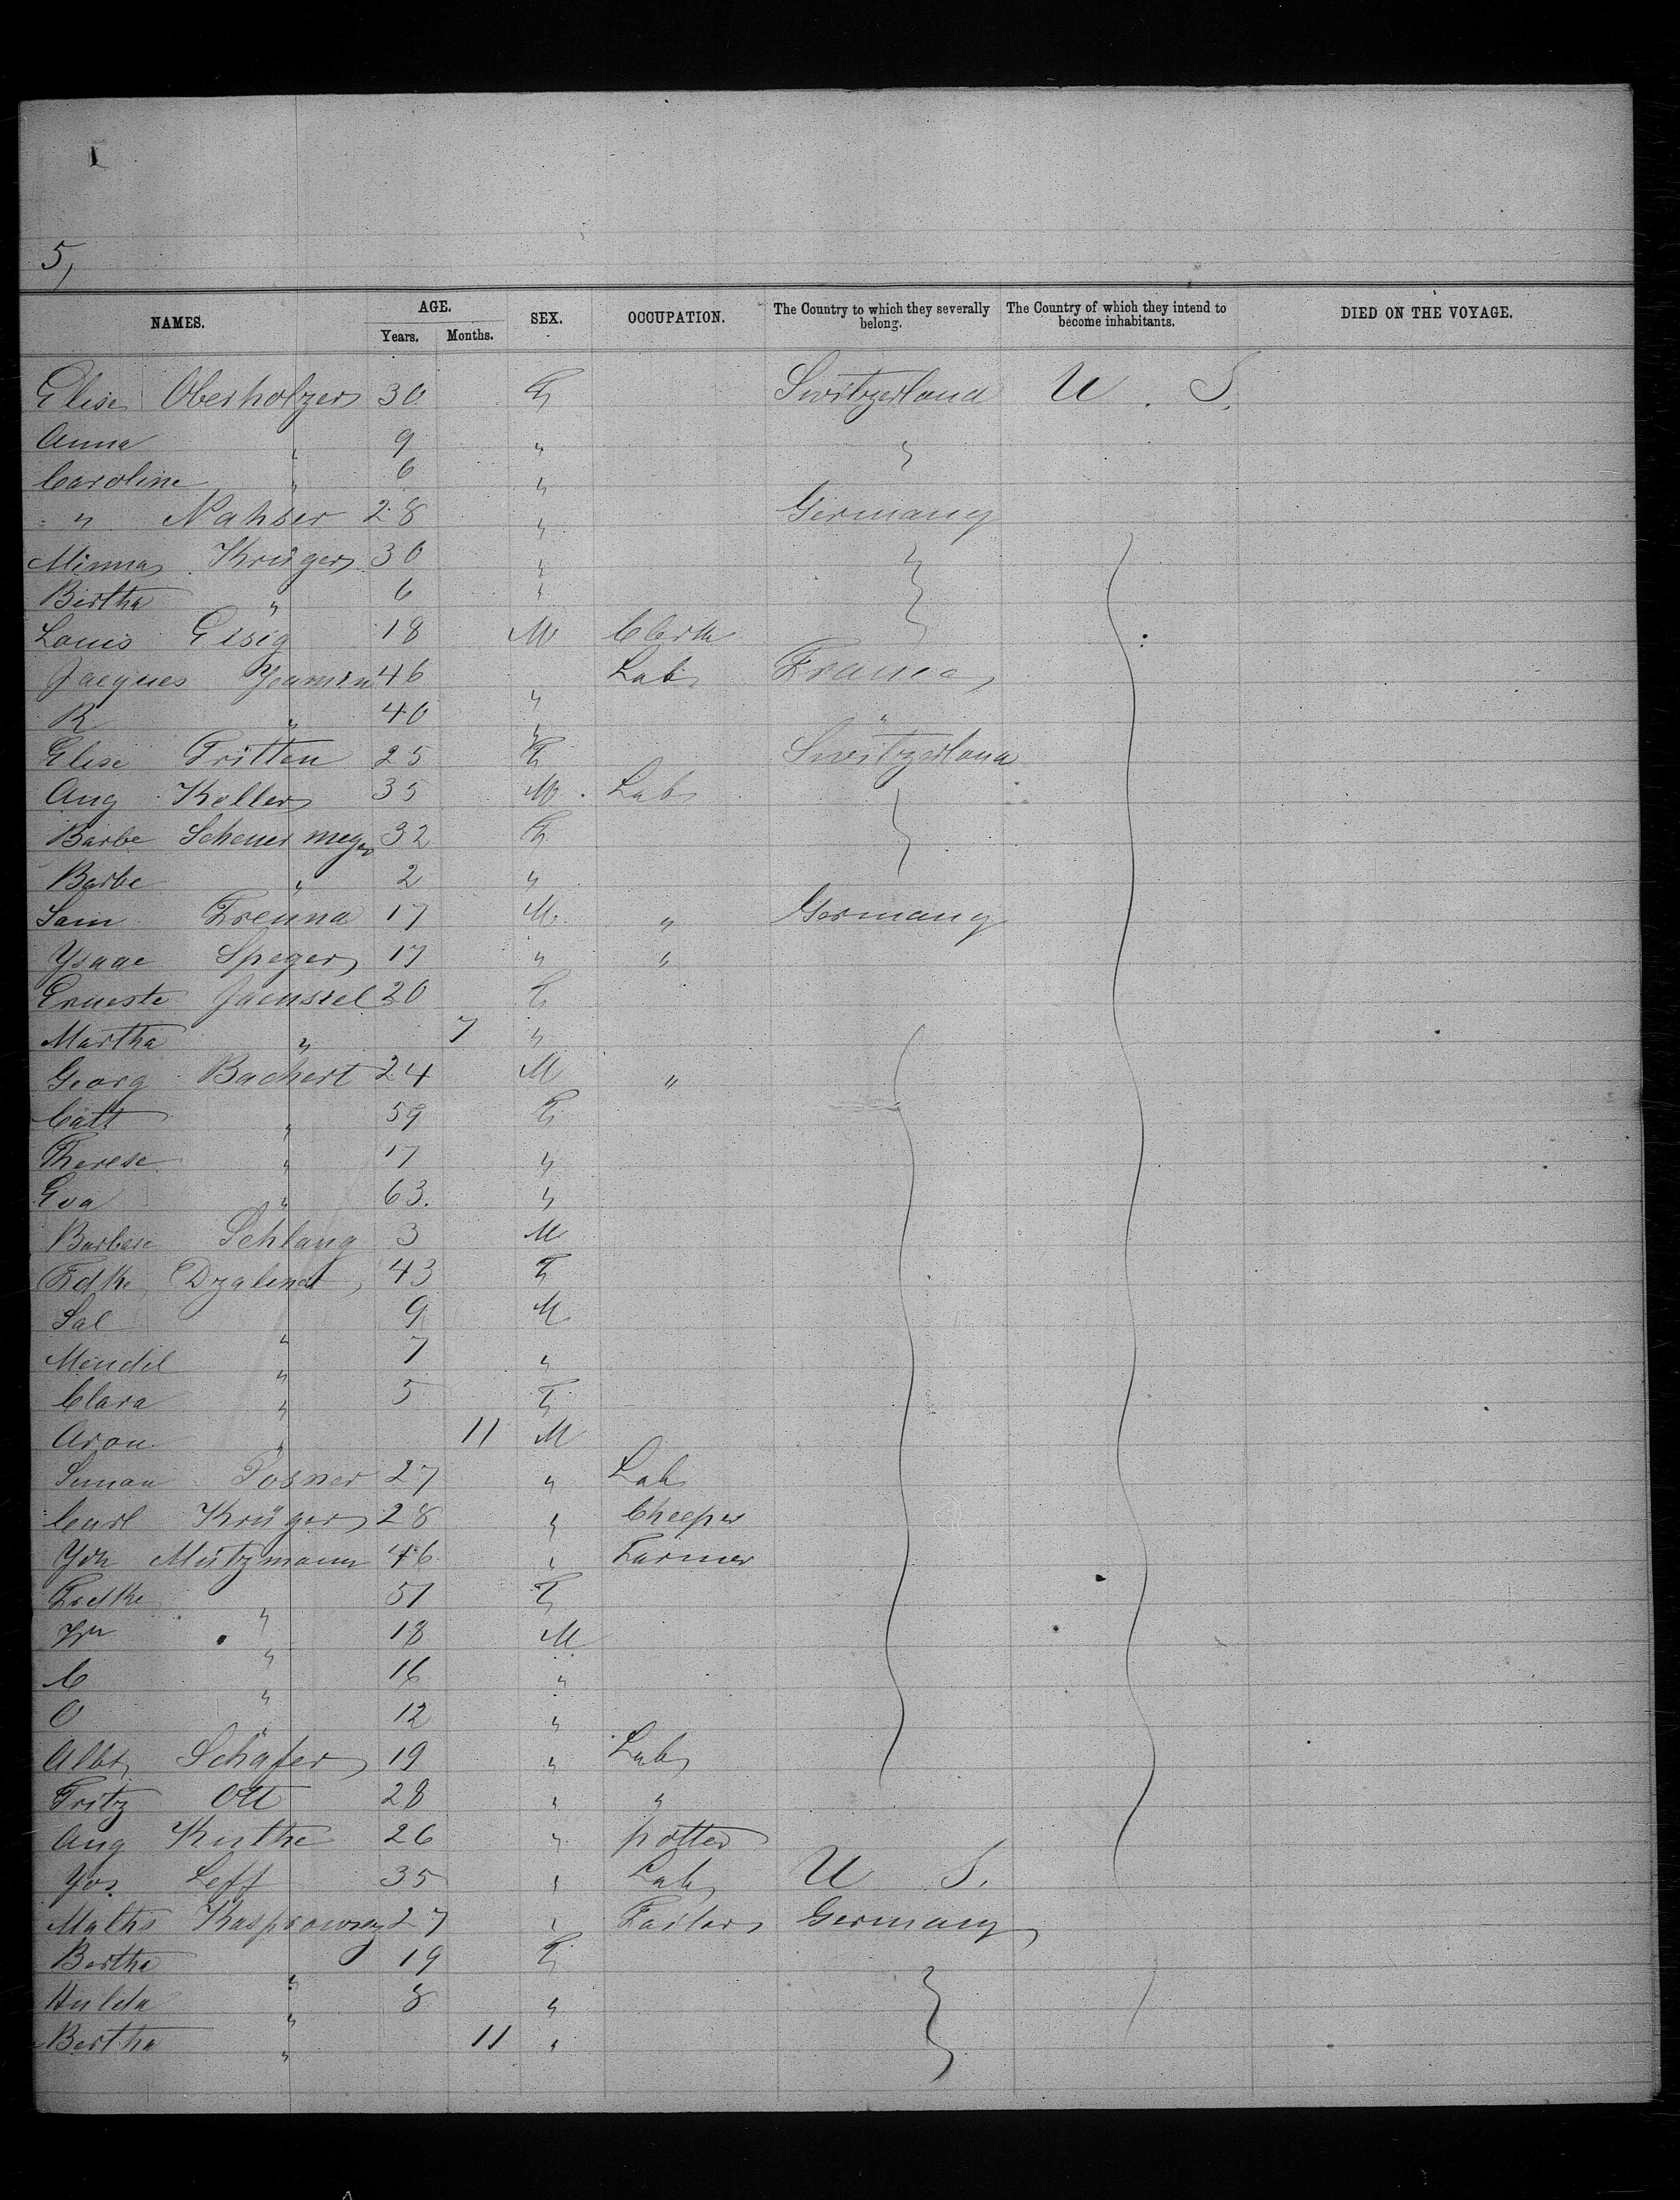 5,
NAMES. AGE. SEX. OCCUPATION. The Country to which they severally belong. The Country of which they intend to become inhabitants. DIED ON THE VOYAGE.
Years. Months.
Elise Oberholzer 30 F Switzerland U. S.
Anna " 9 " "
Caroline " 6 "
" Nahser 28 " Germany
Minna Krüger 30 " "
Bertha " 6 "
Louis Eisig 18 M Clerk
Jacques 46 Lab France
R " 40 " "
Elise Tritten 25 F Switzerland
Aug Keller 35 M Lab
Barbe Scheuermeyer 32 F
Barbe " 2 "
Sam Frenna 17 M " Germany
Ysaac Speger 17 " "
Erneste 20 F
Martha " 7 "
Georg Bachert 24 M "
Cath " 59 F
Therese " 17 "
Eva " 63. "
Barbara Schlang 3 M
Fdke 43 F
Sal " 9 M
Mendel " 7 "
Clara " 5 F
Aron " 11 M
Posner 27 " Lab
Carl Krüger 28 "
Joh Mützmann 46 " Farmer
Fredke " 51 F
" 18 M
C " 16 "
O " 12 "
Albt Schäfer 19 " Lab
Fritz Ott 28 " "
Aug Kuthe 26 " potter
Jos Leff 35 " Lab U S.
Maths 27 " Germany
Bertha " 19 F
Hulda " 8 "
Bertha " 11 "